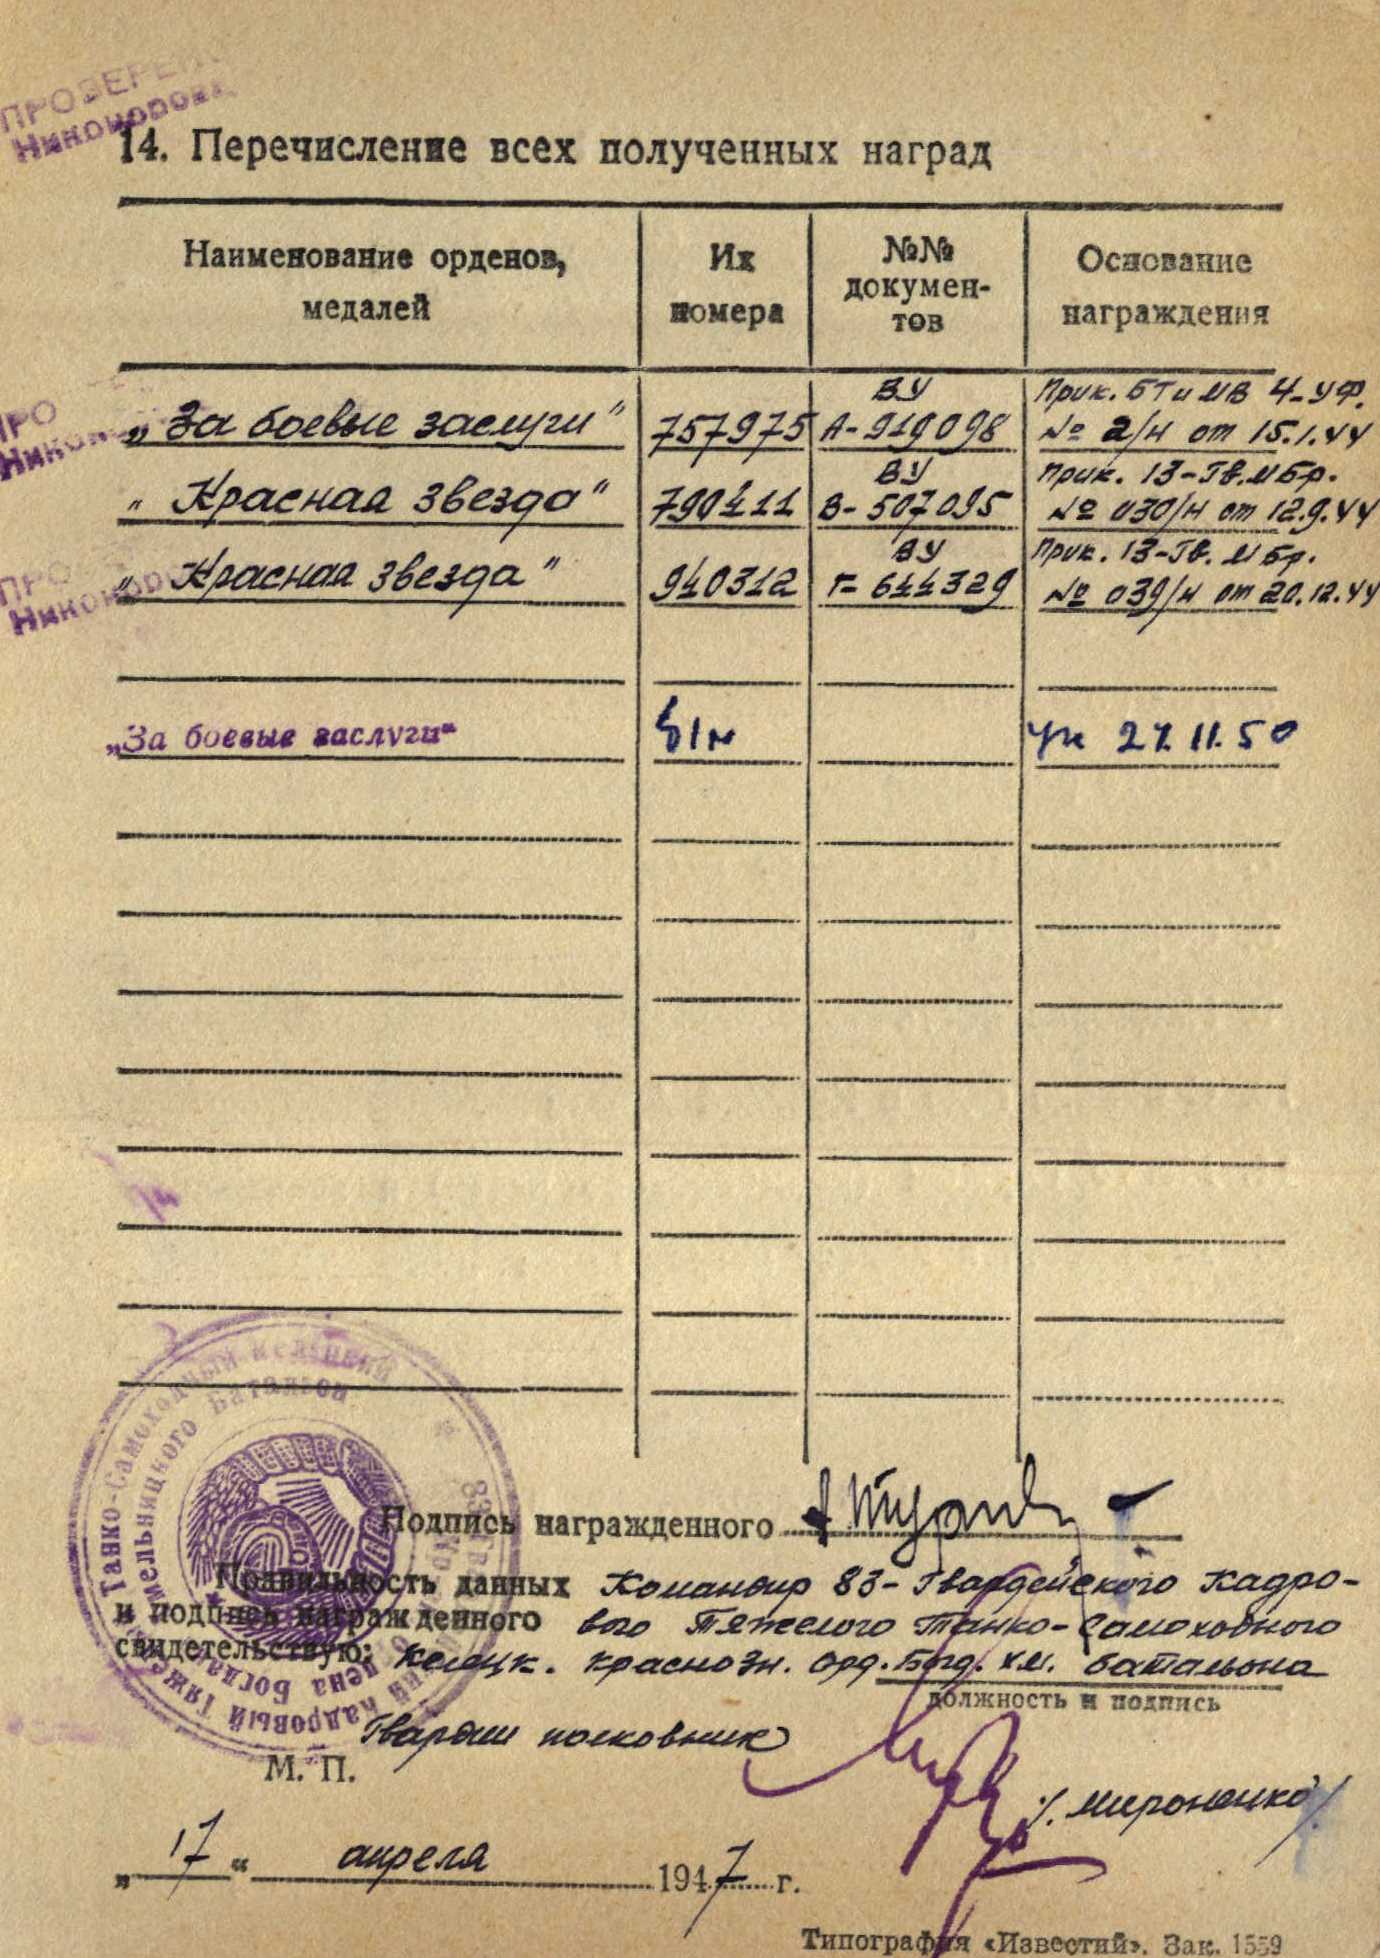 ПРОВЕРЕНО
Никонорова
14. Перечисление всех полученных наград
Наименование орденов, медалей
Их номера
№№ докумен-тов
Основание награждения
ВУ Прик. БТ и МВ 4-УФ.
„За боевые заслуги“ 757975 А-919098 № 2/н от 15.1.44
ВУ Прик. 13-Гв. МБр.
„Красная звезда“ 790411 В-507095 № 030/н от 12.9.44
ВУ Прик. 13-Гв. МБр.
„Красная звезда“ 940312 Г-644329 № 039/н от 20.12.44
„За боевые заслуги“ б/н Ук 27.11.50
Подпись награжденного
Правильность данных Командир 83-Гвардейского Кадро-
и подпись награжденного вого Тяжелого Танко-Самоходного
свидетельствую: Келецк. Краснозн. Орд. Богд. Хм. батальона
должность и подпись
Гвардии полковник
М. П.
/. Мироненко/
„17“ апреля 1947 г.
Типография «Известий». Зак. 1559